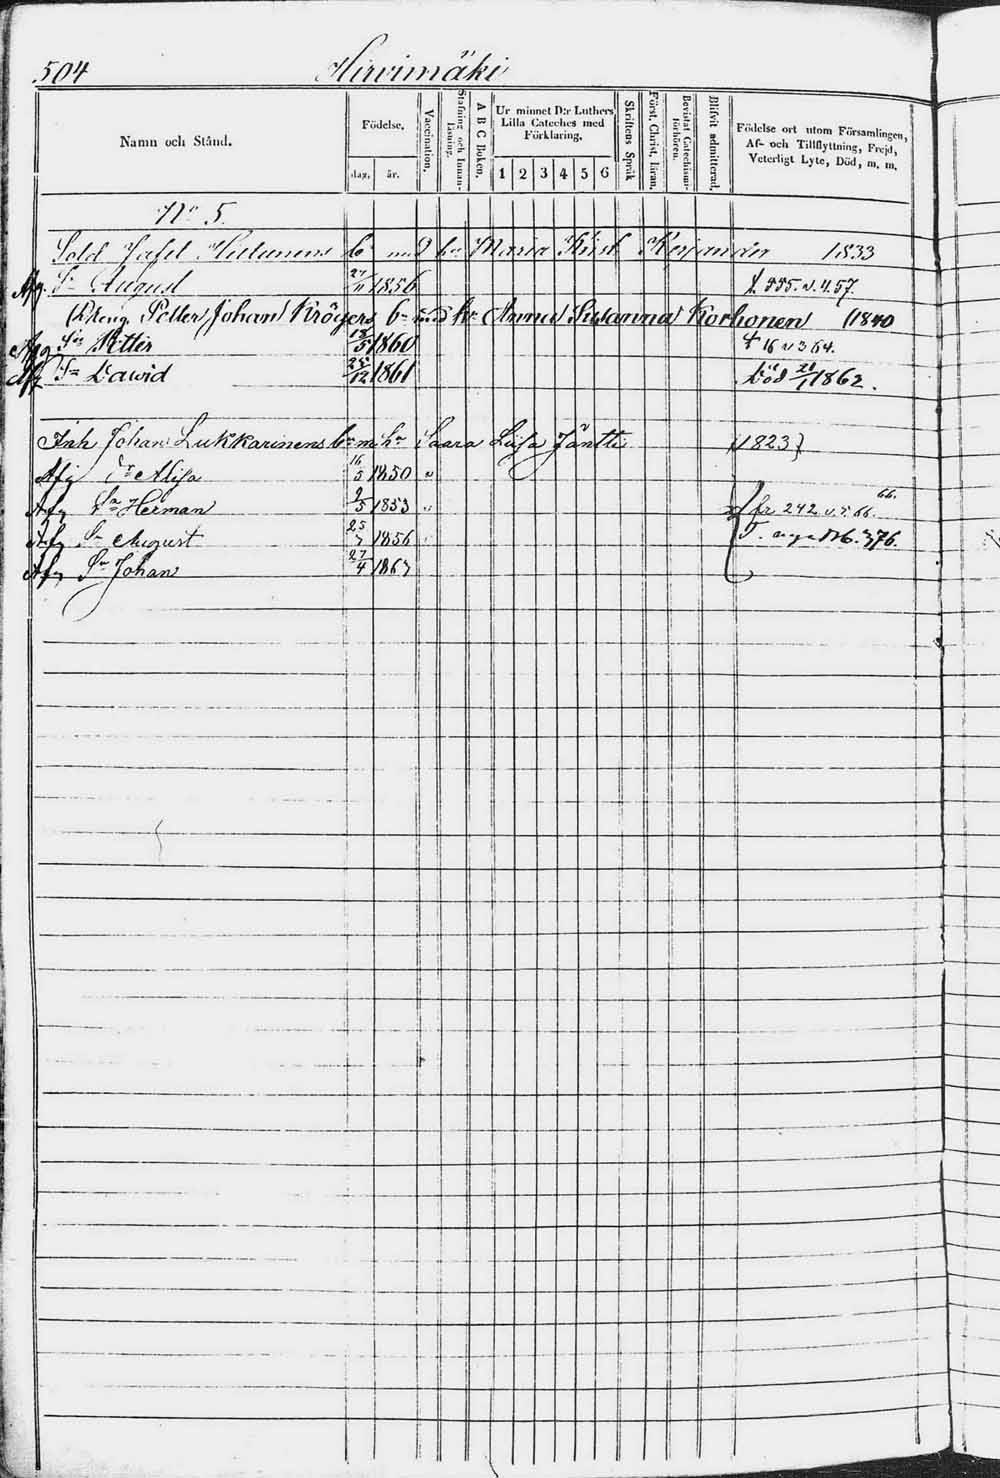 504 Hirvimäki
Namn och Stånd. Födelse. dag. år. Vaccination. Stafning och Innanläsning. A B C Boken. Ur minnet D:r Luthers Lilla Cateches med Förklaring. 1 2 3 4 5 6 Skriftens Språk Först. Christ. läran. Bevistat Catechismiförhören. Blifvit admitterad. Födelse ort utom Församlingen, Af- och Tillflyttning, Frejd, Veterligt Lyte, Död, m. m.
No 5.
Sold b med hu Maria 1833
Afg Sn August 27/11 1856 f. v. 4. 57.
Dreng Petter Johan Krögers bn med hu Anna Susanna Korhonen (1840
Afg Sn Petter 5 1860 f 16 v 3 64.
Afg Sn Dawid 25/12 1861 Död 1862.
Inh Johan Lukkarinens bn m hu Saara Lisa Jäntti (1823)
Afg Dr Alisa 16/5 1850 "
Afg Sn Herman 2/5 1853 " fr 242 v. 5. 66. 66.
Afg Sn August 25/7 1856 T. nya Bb. 376.
Afg Sn Johan 27/4 1863